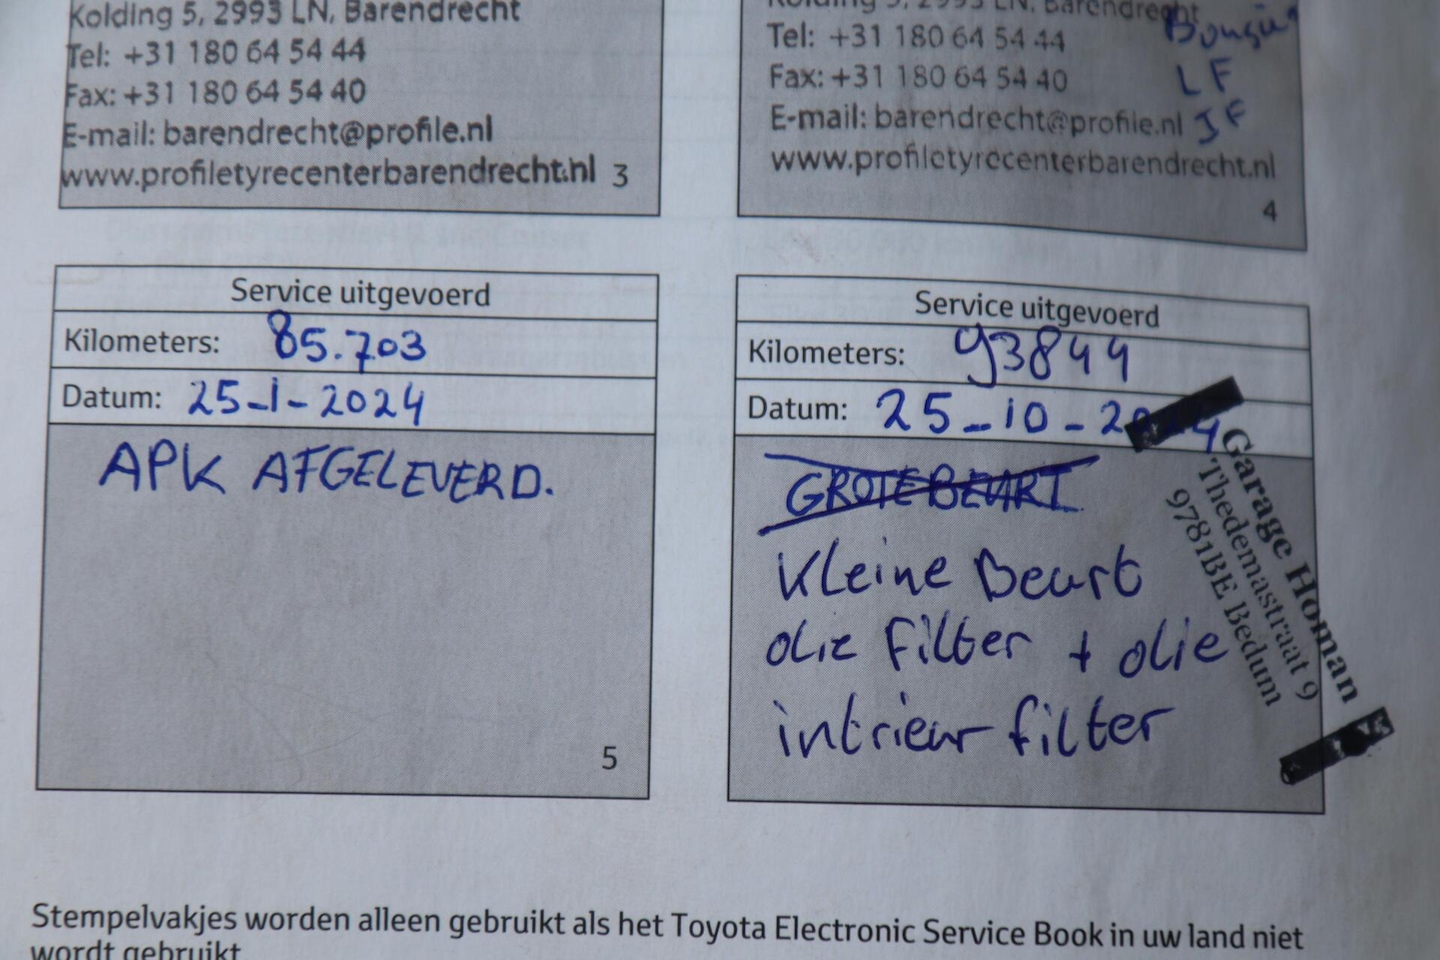 Kolding 5, 2993 LN, Barendrecht
Tel: +31 180 64 54 44
Fax: +31 180 64 54 40
E-mail: barendrecht@profile.nl
www.profiletyrecenterbarendrecht.nl 3
Kolding 5, 2993 LN, Barendrecht
Tel: +31 180 64 54 44
Fax: +31 180 64 54 40
E-mail: barendrecht@profile.nl
www.profiletyrecenterbarendrecht.nl
LF
4
Service uitgevoerd
Kilometers: 85.703
Datum: 25-1-2024
APK AFGELEVERD.
5
Service uitgevoerd
Kilometers: 93844
Datum: 25-10-2024
GROTE BEURT
Kleine Beurt
olie filter + olie
intrieur filter
Garage Homan
Thedemastraat 9
9781BE Bedum
Stempelvakjes worden alleen gebruikt als het Toyota Electronic Service Book in uw land niet
wordt gebruikt